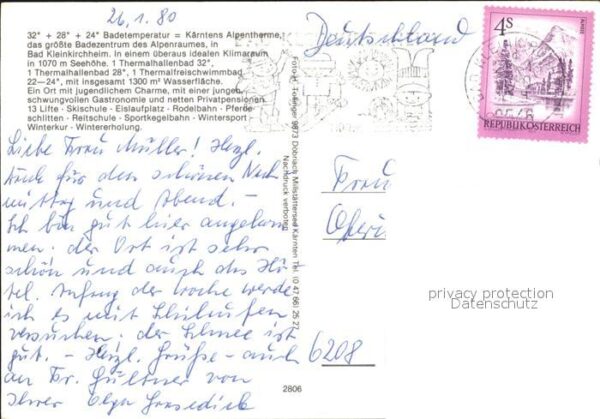 26.1.80
32° + 28° + 24° Badetemperatur = Kärntens Alpentherme,
das größte Badezentrum des Alpenraumes, in
Bad Kleinkirchheim. In einem überaus idealen Klimaraum
in 1070 m Seehöhe. 1 Thermalhallenbad 32°,
1 Thermalhallenbad 28°, 1 Thermalfreischwimmbad
22—24°, mit insgesamt 1300 m² Wasserfläche.
Ein Ort mit jugendlichem Charme, mit einer jungen,
schwungvollen Gastronomie und netten Privatpensionen.
13 Lifte - Skischule - Eislaufplatz - Rodelbahn - Pferde-
schlitten - Reitschule - Sportkegelbahn - Wintersport
Winterkur - Wintererholung.
Liebe Frau Müller! Herzl.
Dank für den schönen Nach
mittag und Abend. -
Ich bin gut hier angekom
men. der Ort ist sehr
schön und auch das Ho
tel. Anfang der Woche werde
ich es mit Schilaufen
versuchen, der Schnee ist
gut. - Herzl. Grüße - auch
an Fr. Güttner von
Ihrer Olga
Dobriach Millstättersee Kärnten Tel. (0 47 66) 25 27
Nachdruck verboten
2806
Deutschland
4S
REPUBLIK ÖSTERREICH
Frau
6208
privacy protection
Datenschutz